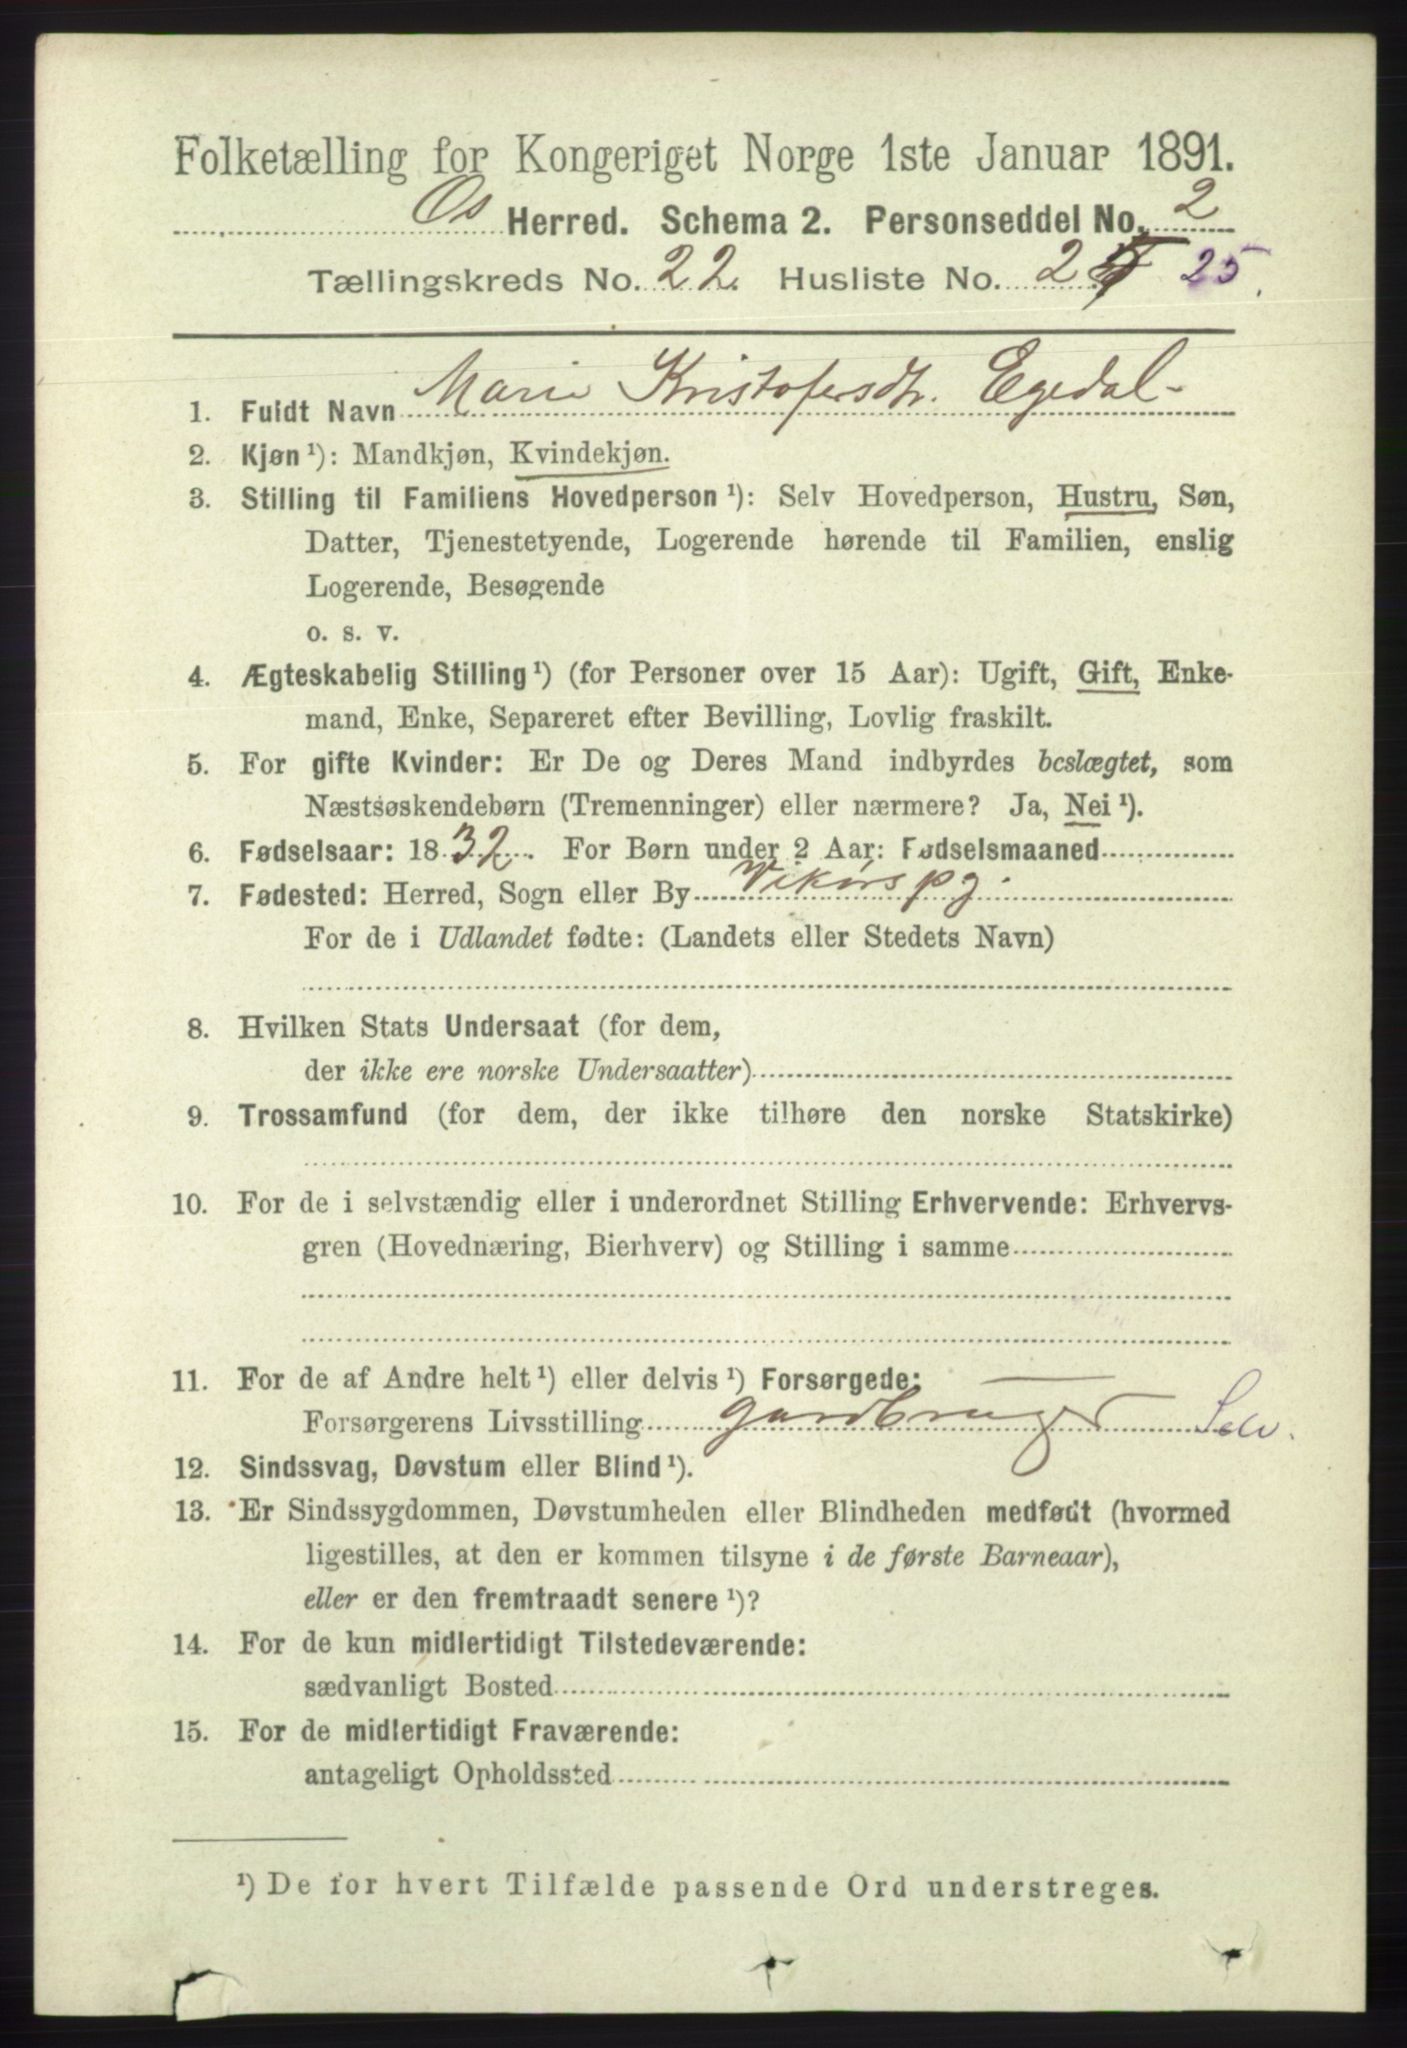 Folketælling for Kongeriget Norge 1ste Januar 1891.
Os Herred. Schema 2. Personseddel No. 2
Tællingskreds No. 22. Husliste No. 2 25.
1. Fuldt Navn Marie Kristofersdtr. Egedal
2. Kjøn ¹): Mandkjøn, Kvindekjøn.
3. Stilling til Familiens Hovedperson ¹): Selv Hovedperson, Hustru, Søn,
Datter, Tjenestetyende, Logerende hørende til Familien, enslig
Logerende, Besøgende
o. s. v.
4. Ægteskabelig Stilling ¹) (for Personer over 15 Aar): Ugift, Gift, Enke-
mand, Enke, Separeret efter Bevilling, Lovlig fraskilt.
5. For gifte Kvinder: Er De og Deres Mand indbyrdes beslægtet, som
Næstsøskendebørn (Tremenninger) eller nærmere? Ja, Nei ¹).
6. Fødselsaar: 1832. For Børn under 2 Aar: Fødselsmaaned
7. Fødested: Herred, Sogn eller By Vikørs pg.
For de i Udlandet fødte: (Landets eller Stedets Navn)
8. Hvilken Stats Undersaat (for dem,
der ikke ere norske Undersaatter)
9. Trossamfund (for dem, der ikke tilhøre den norske Statskirke)
10. For de i selvstændig eller i underordnet Stilling Erhvervende: Erhvervs-
gren (Hovednæring, Bierhverv) og Stilling i samme
11. For de af Andre helt ¹) eller delvis ¹) Forsørgede:
Forsørgerens Livsstilling gardbruger Selv.
12. Sindssvag, Døvstum eller Blind ¹).
13. Er Sindssygdommen, Døvstumheden eller Blindheden medfødt (hvormed
ligestilles, at den er kommen tilsyne i de første Barneaar),
eller er den fremtraadt senere ¹)?
14. For de kun midlertidigt Tilstedeværende:
sædvanligt Bosted
15. For de midlertidigt Fraværende:
antageligt Opholdssted
¹) De for hvert Tilfælde passende Ord understreges.